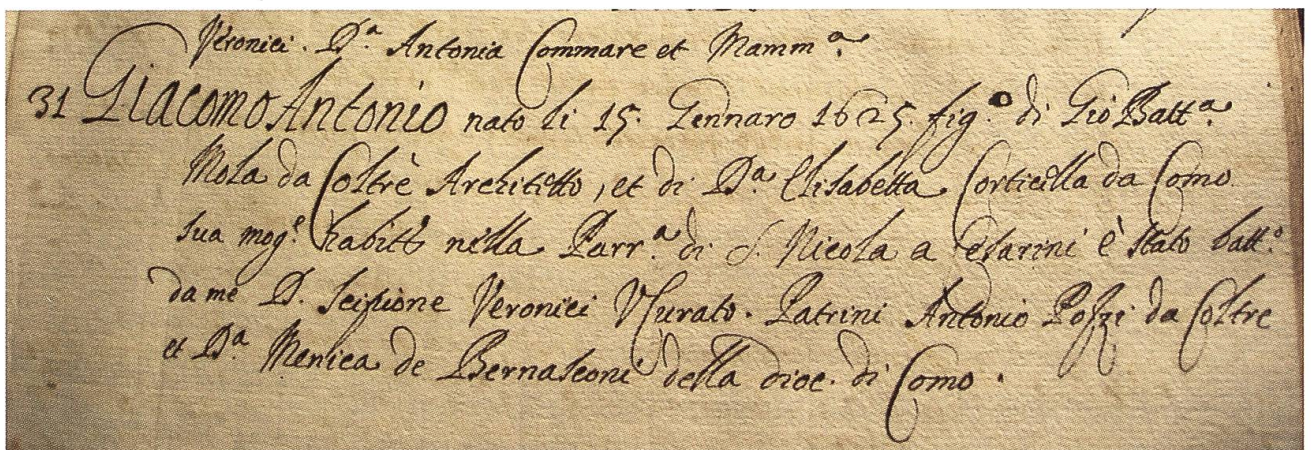 Veronici. D.ª Antonia Commare et Mamm.ª
31 Giacomo Antonio nato li 15. Gennaro 1625. fig.º di Gio Batt.ª
Mola da Coltrè Architetto, et di D.ª Elisabetta Corticella da Como
sua mog.e habitt nella Parr.ª di S. Nicola a Cesarini è stato batt.º
da me D. Scipione Veronici VCurato. Patrini Antonio Pozzi da Coltre
et D.ª Menica de Bernasconi della dioc. di Como.